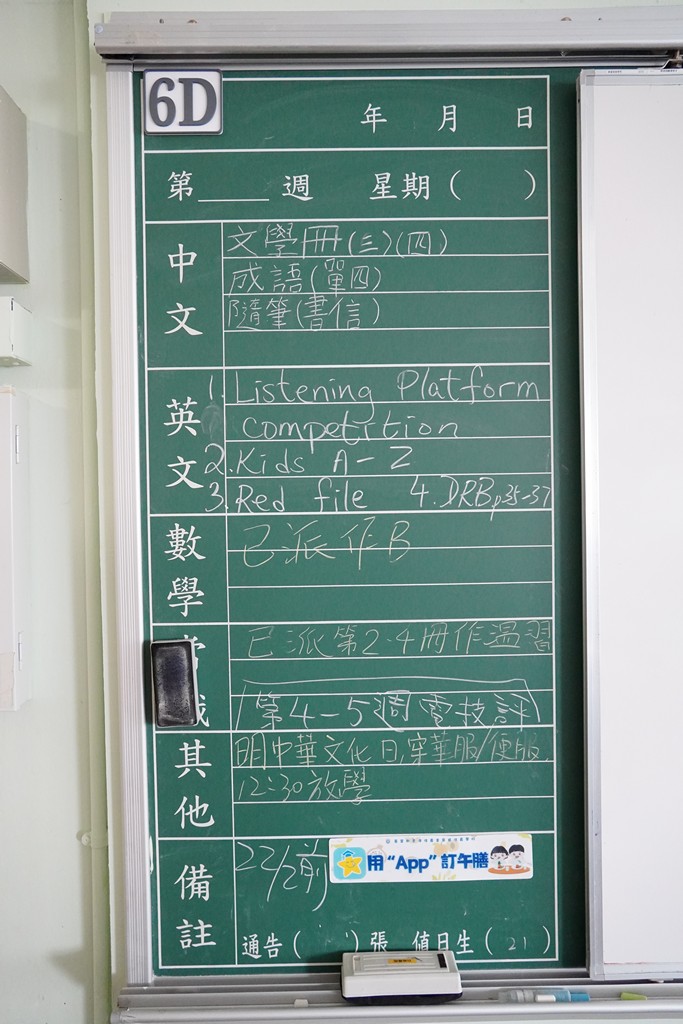 6D
年 月 日
第____週 星期( )
中文
文學冊(三)(四)
成語(單四)
隨筆(書信)
英文
1. Listening Platform
competition
2. Kids A-Z
3. Red file 4. DRB p35-37
數學
已派作B
已派第2.4冊作溫習
第4-5週電技評
其他
明中華文化日,穿華服/便服,
12:30放學
備註
22/2前
用“App”訂午膳
通告( )張 值日生(21)